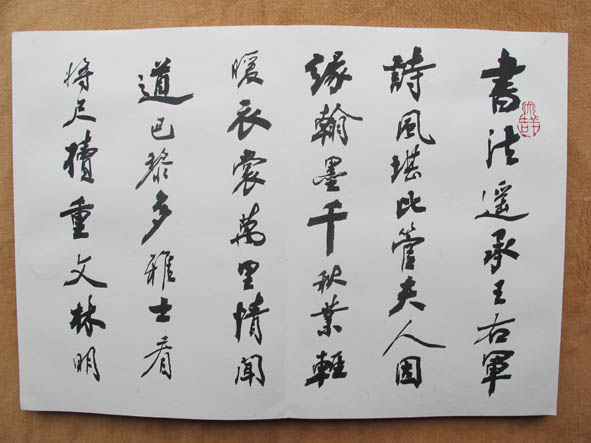 書法遥承王右軍
詩風堪比管夫人因
緣翰墨千秋業輕
暖衣裳萬里情聞
道巴黎多雅士看
將尺牘重文林明